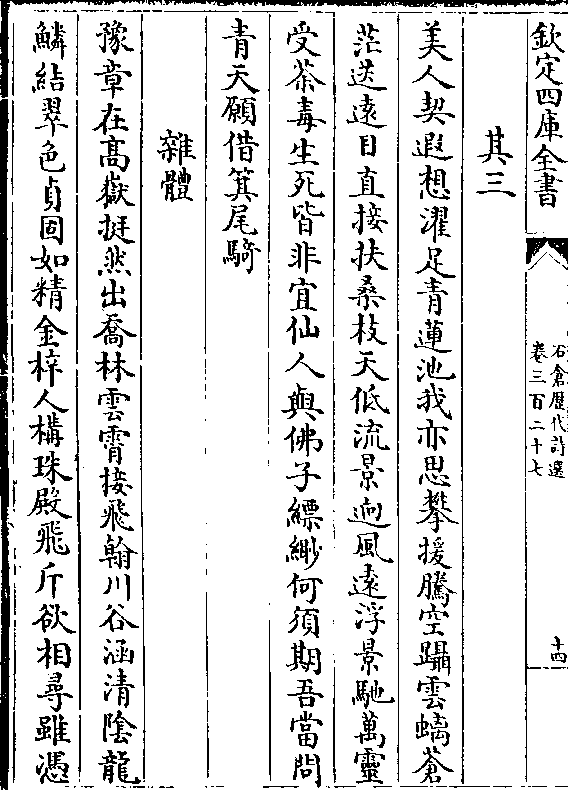 欽定四庫全書
石倉歴代詩選
卷三百二十七
十四
其三
美人契遐想濯足青蓮池我亦思攀援騰空躡雲螭蒼
茫送遠目直接扶桑枝天低流景逈風遠浮景馳萬靈
受荼毒生死皆非宜仙人與佛子縹緲何須期吾當問
青天願借箕尾騎
雜體
豫章在髙嶽挺然出喬林雲霄接飛翰川谷涵清陰龍
鱗結翠色貞固如精金梓人構珠殿飛斤欲相尋雖憑